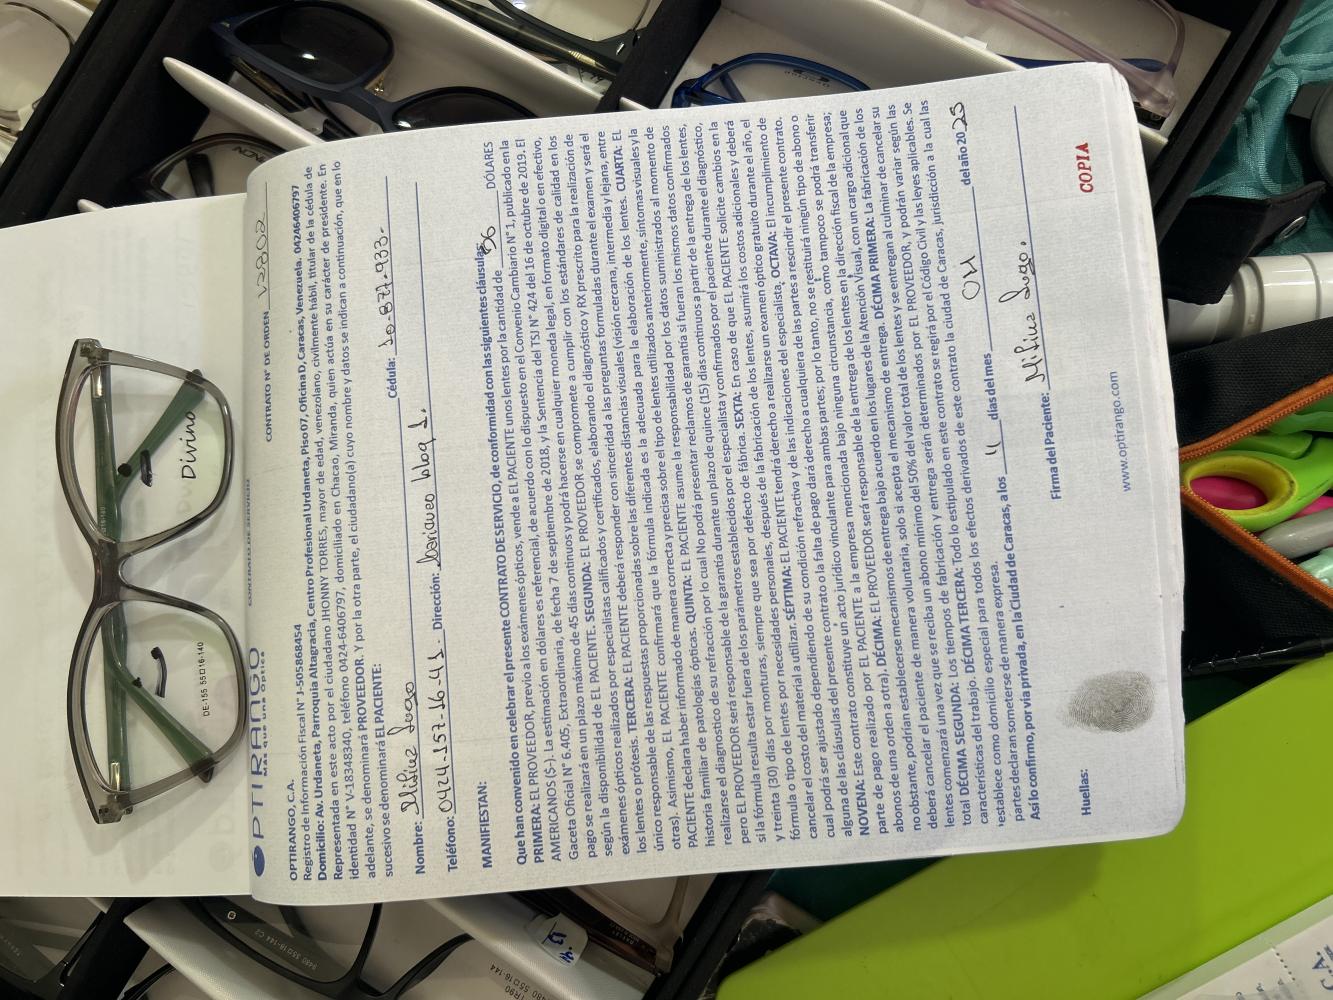 OPTIRANGO
Más que una óptica
CONTRATO DE SERVICIO
CONTRATO N° DE ORDEN V2802
OPTIRANGO, C.A.
Registro de Información Fiscal N° J-505868454
Domicilio: Av. Urdaneta, Parroquia Altagracia, Centro Profesional Urdaneta, Piso 07, Oficina D, Caracas, Venezuela. 04246406797
Representada en este acto por el ciudadano JHONNY TORRES, mayor de edad, venezolano, civilmente hábil, titular de la cédula de
identidad N° V-18348340, teléfono 0424-6406797, domiciliado en Chacao, Miranda, quien actúa en su carácter de presidente. En
adelante, se denominará PROVEEDOR. Y por la otra parte, el ciudadano(a) cuyo nombre y datos se indican a continuación, que en lo
sucesivo se denominará EL PACIENTE:
Nombre: Lugo Cédula: 20-877-933-
Teléfono: 0424-157-16-41. Dirección:
MANIFIESTAN:
Que han convenido en celebrar el presente CONTRATO DE SERVICIO, de conformidad con las siguientes cláusulas:
PRIMERA: EL PROVEEDOR, previo a los exámenes ópticos, vende a EL PACIENTE unos lentes por la cantidad de 36 DÓLARES
AMERICANOS ($-). La estimación en dólares es referencial, de acuerdo con lo dispuesto en el Convenio Cambiario N° 1, publicado en la
Gaceta Oficial N° 6.405, Extraordinaria, de fecha 7 de septiembre de 2018, y la Sentencia del TSJ N° 424 del 16 de octubre de 2019. El
pago se realizará en un plazo máximo de 45 días continuos y podrá hacerse en cualquier moneda legal, en formato digital o en efectivo,
según la disponibilidad de EL PACIENTE. SEGUNDA: EL PROVEEDOR se compromete a cumplir con los estándares de calidad en los
exámenes ópticos realizados por especialistas calificados y certificados, elaborando el diagnóstico y RX prescrito para la realización de
los lentes o prótesis. TERCERA: EL PACIENTE deberá responder con sinceridad a las preguntas formuladas durante el examen y será el
único responsable de las respuestas proporcionadas sobre las diferentes distancias visuales (visión cercana, intermedia y lejana, entre
otras). Asimismo, EL PACIENTE confirmará que la fórmula indicada es la adecuada para la elaboración de los lentes. CUARTA: EL
PACIENTE declara haber informado de manera correcta y precisa sobre el tipo de lentes utilizados anteriormente, síntomas visuales y la
historia familiar de patologías ópticas. QUINTA: EL PACIENTE asume la responsabilidad por los datos suministrados al momento de
realizarse el diagnostico de su refracción por lo cual No podrá presentar reclamos de garantía si fueran los mismos datos confirmados
pero EL PROVEEDOR será responsable de la garantía durante un plazo de quince (15) días continuos a partir de la entrega de los lentes,
si la fórmula resulta estar fuera de los parámetros establecidos por el especialista y confirmados por el paciente durante el diagnóstico,
y treinta (30) días por monturas, siempre que sea por defecto de fábrica. SEXTA: En caso de que EL PACIENTE solicite cambios en la
fórmula o tipo de lentes por necesidades personales, después de la fabricación de los lentes, asumirá los costos adicionales y deberá
cancelar el costo del material a utilizar. SÉPTIMA: EL PACIENTE tendrá derecho a realizarse un examen óptico gratuito durante el año, el
cual podrá ser ajustado dependiendo de su condición refractiva y de las indicaciones del especialista, OCTAVA: El incumplimiento de
alguna de las cláusulas del presente contrato o la falta de pago dará derecho a cualquiera de las partes a rescindir el presente contrato.
NOVENA: Este contrato constituye un acto jurídico vinculante para ambas partes; por lo tanto, no se restituirá ningún tipo de abono o
parte de pago realizado por EL PACIENTE a la empresa mencionada bajo ninguna circunstancia, como tampoco se podrá transferir
abonos de una orden a otra). DÉCIMA: EL PROVEEDOR será responsable de la entrega de los lentes en la dirección fiscal de la empresa;
no obstante, podrían establecerse mecanismos de entrega bajo acuerdo en los lugares de la Atención Visual, con un cargo adicional que
deberá cancelar el paciente de manera voluntaria, solo si acepta el mecanismo de entrega. DÉCIMA PRIMERA: La fabricación de los
lentes comenzará una vez que se reciba un abono mínimo del 50% del valor total de los lentes y se entregan al culminar de cancelar su
total DÉCIMA SEGUNDA: Los tiempos de fabricación y entrega serán determinados por EL PROVEEDOR, y podrán variar según las
características del trabajo. DÉCIMA TERCERA: Todo lo estipulado en este contrato se regirá por el Código Civil y las leyes aplicables. Se
establece como domicilio especial para todos los efectos derivados de este contrato la ciudad de Caracas, jurisdicción a la cual las
partes declaran someterse de manera expresa.
Así lo confirmo, por vía privada, en la Ciudad de Caracas, a los 4 días del mes 04 del año 2025
Firma del Paciente: Lugo.
Huellas:
COPIA
www.optirango.com
Divino
DE-155 55□16-140